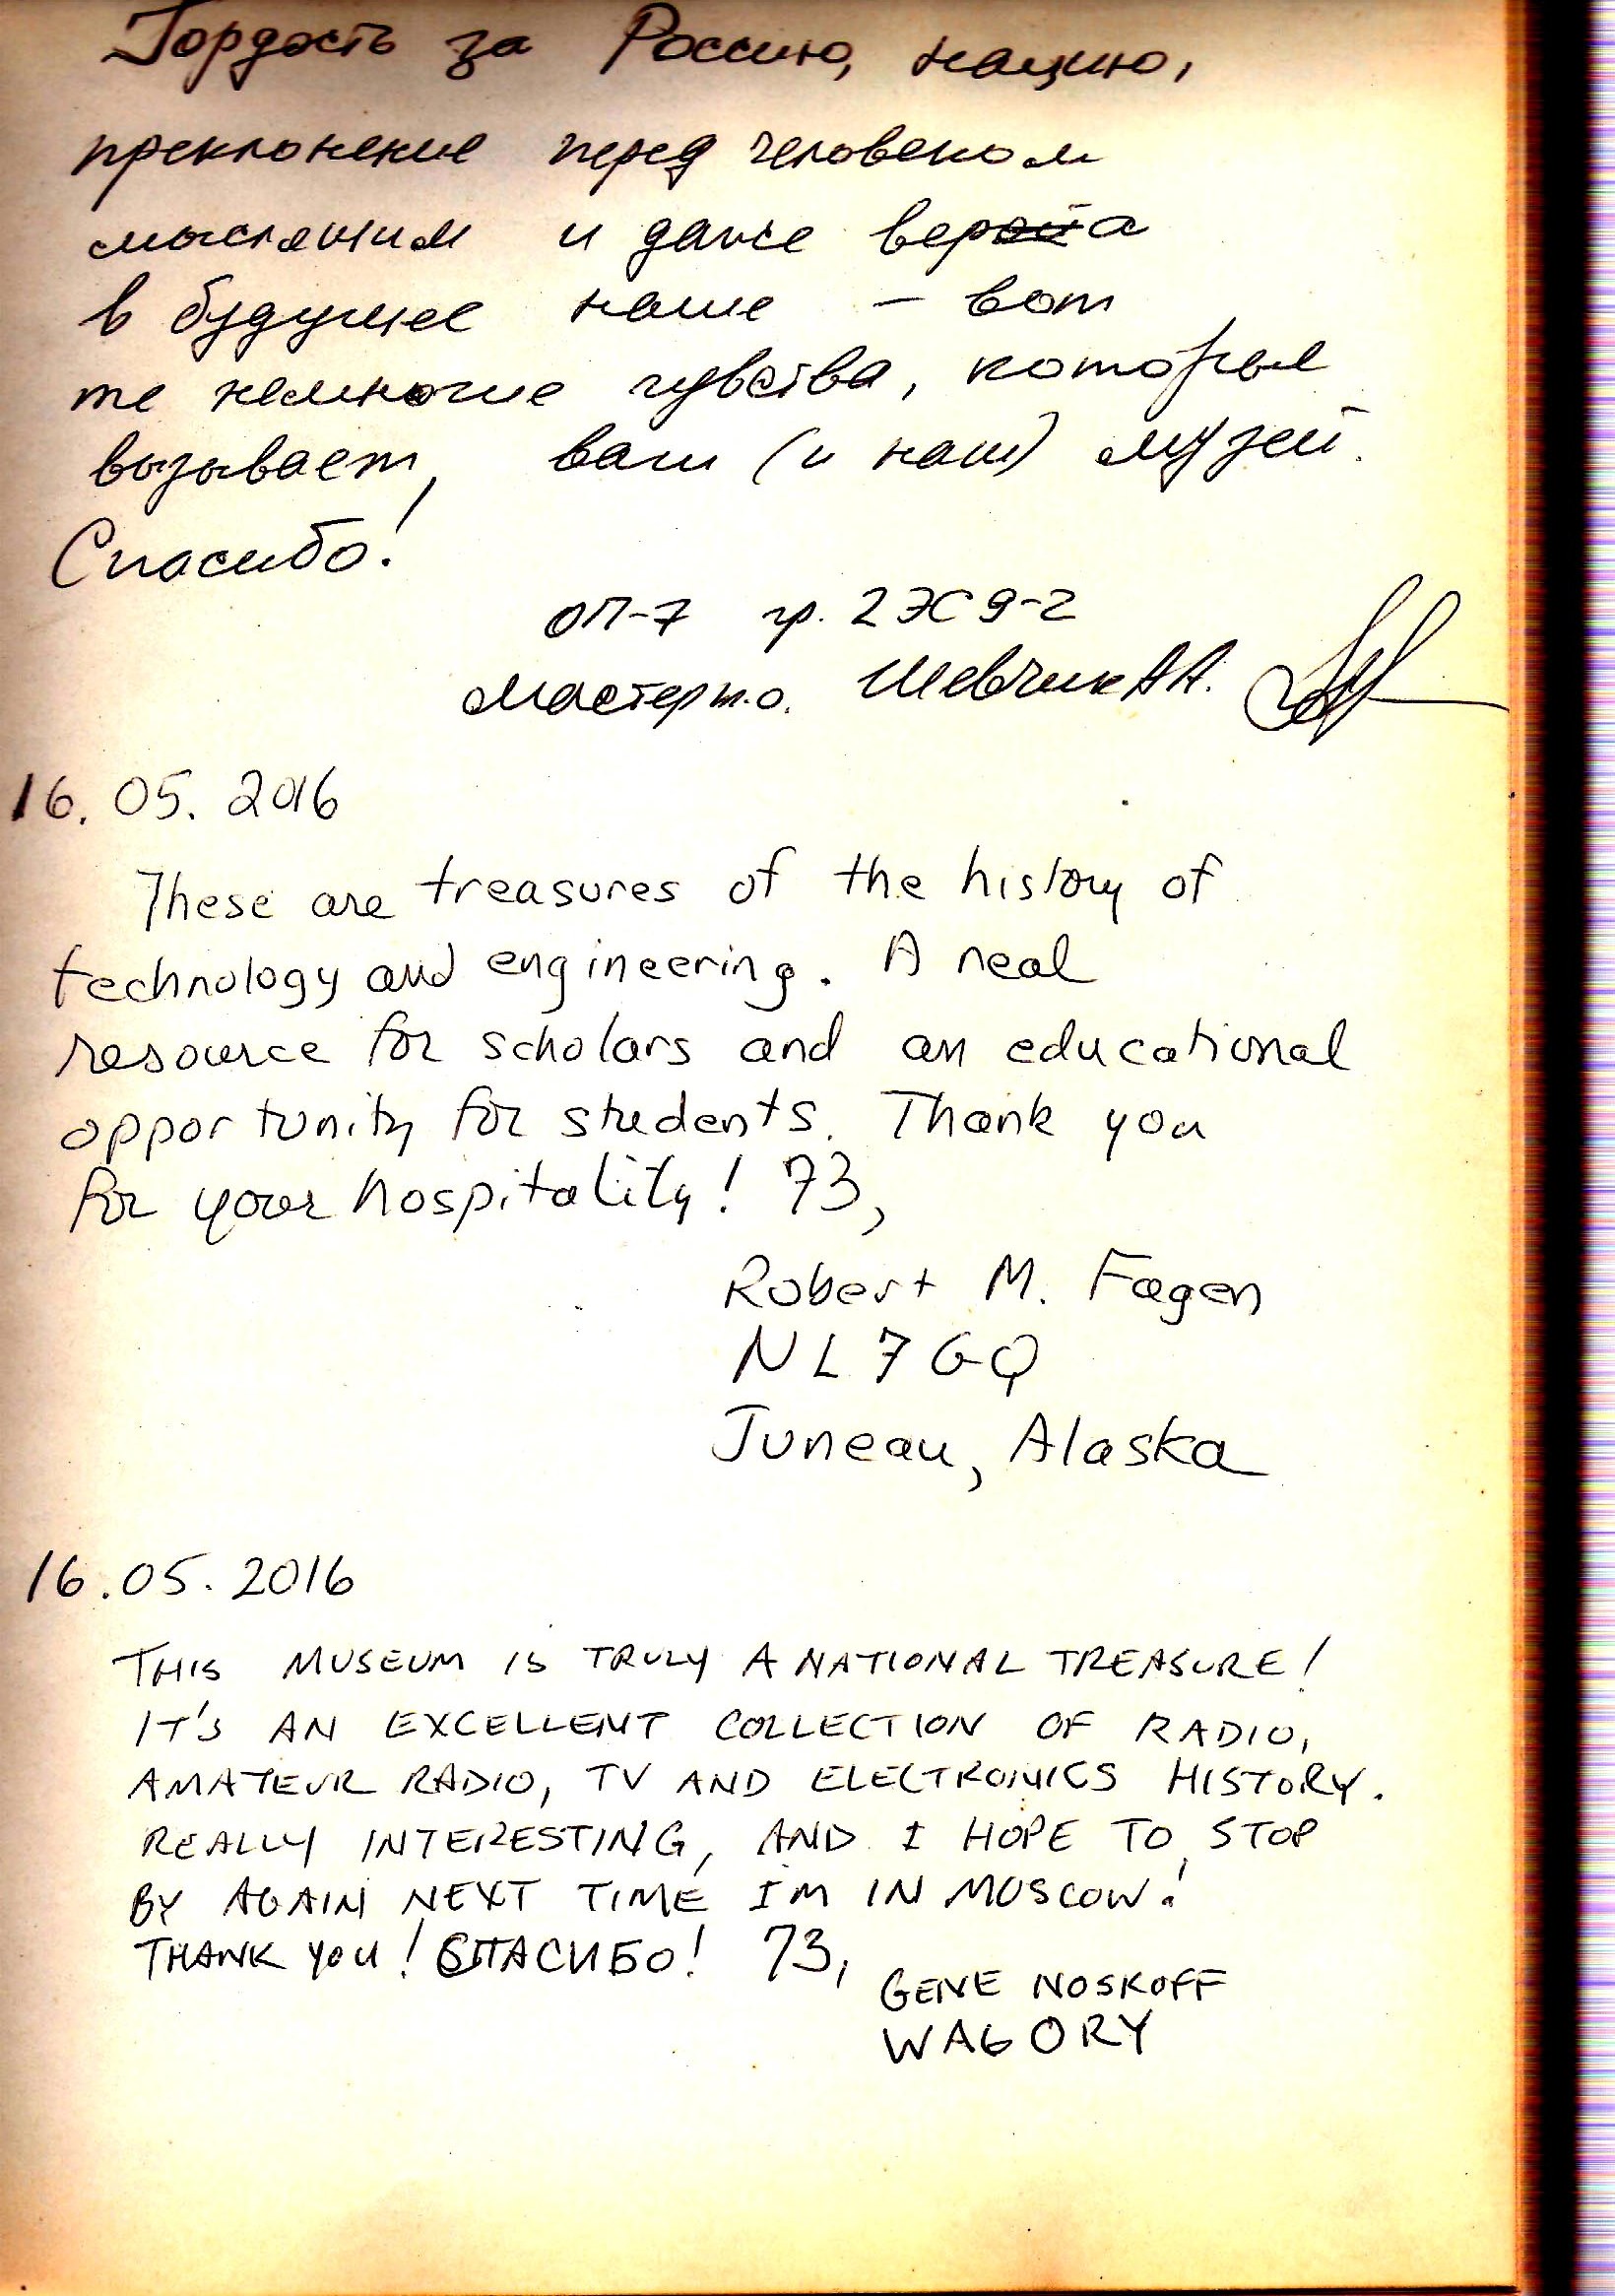 Гордость за Россию, нацию,
преклонение перед человеком
мыслящим и даже вера
в будущее наше – вот
те немногие чувства, которые
вызывает, ваш (и наш) музей.
Спасибо!
ОП-7 гр. 2ЭС9-2
мастер п.о. Шевчик А А.
16. 05. 2016
These are treasures of the history of
technology and engineering. A real
resource for scholars and an educational
opportunity for students. Thank you
for your hospitality! 73,
Robert M. Fagen
NL7GQ
Juneau, Alaska
16.05.2016
THIS MUSEUM IS TRULY A NATIONAL TREASURE!
IT'S AN EXCELLENT COLLECTION OF RADIO,
AMATEUR RADIO, TV AND ELECTRONICS HISTORY.
REALLY INTERESTING, AND I HOPE TO STOP
BY AGAIN NEXT TIME I'M IN MOSCOW!
THANK YOU! СПАСИБО! 73,
GENE NOSKOFF
WA6ORY